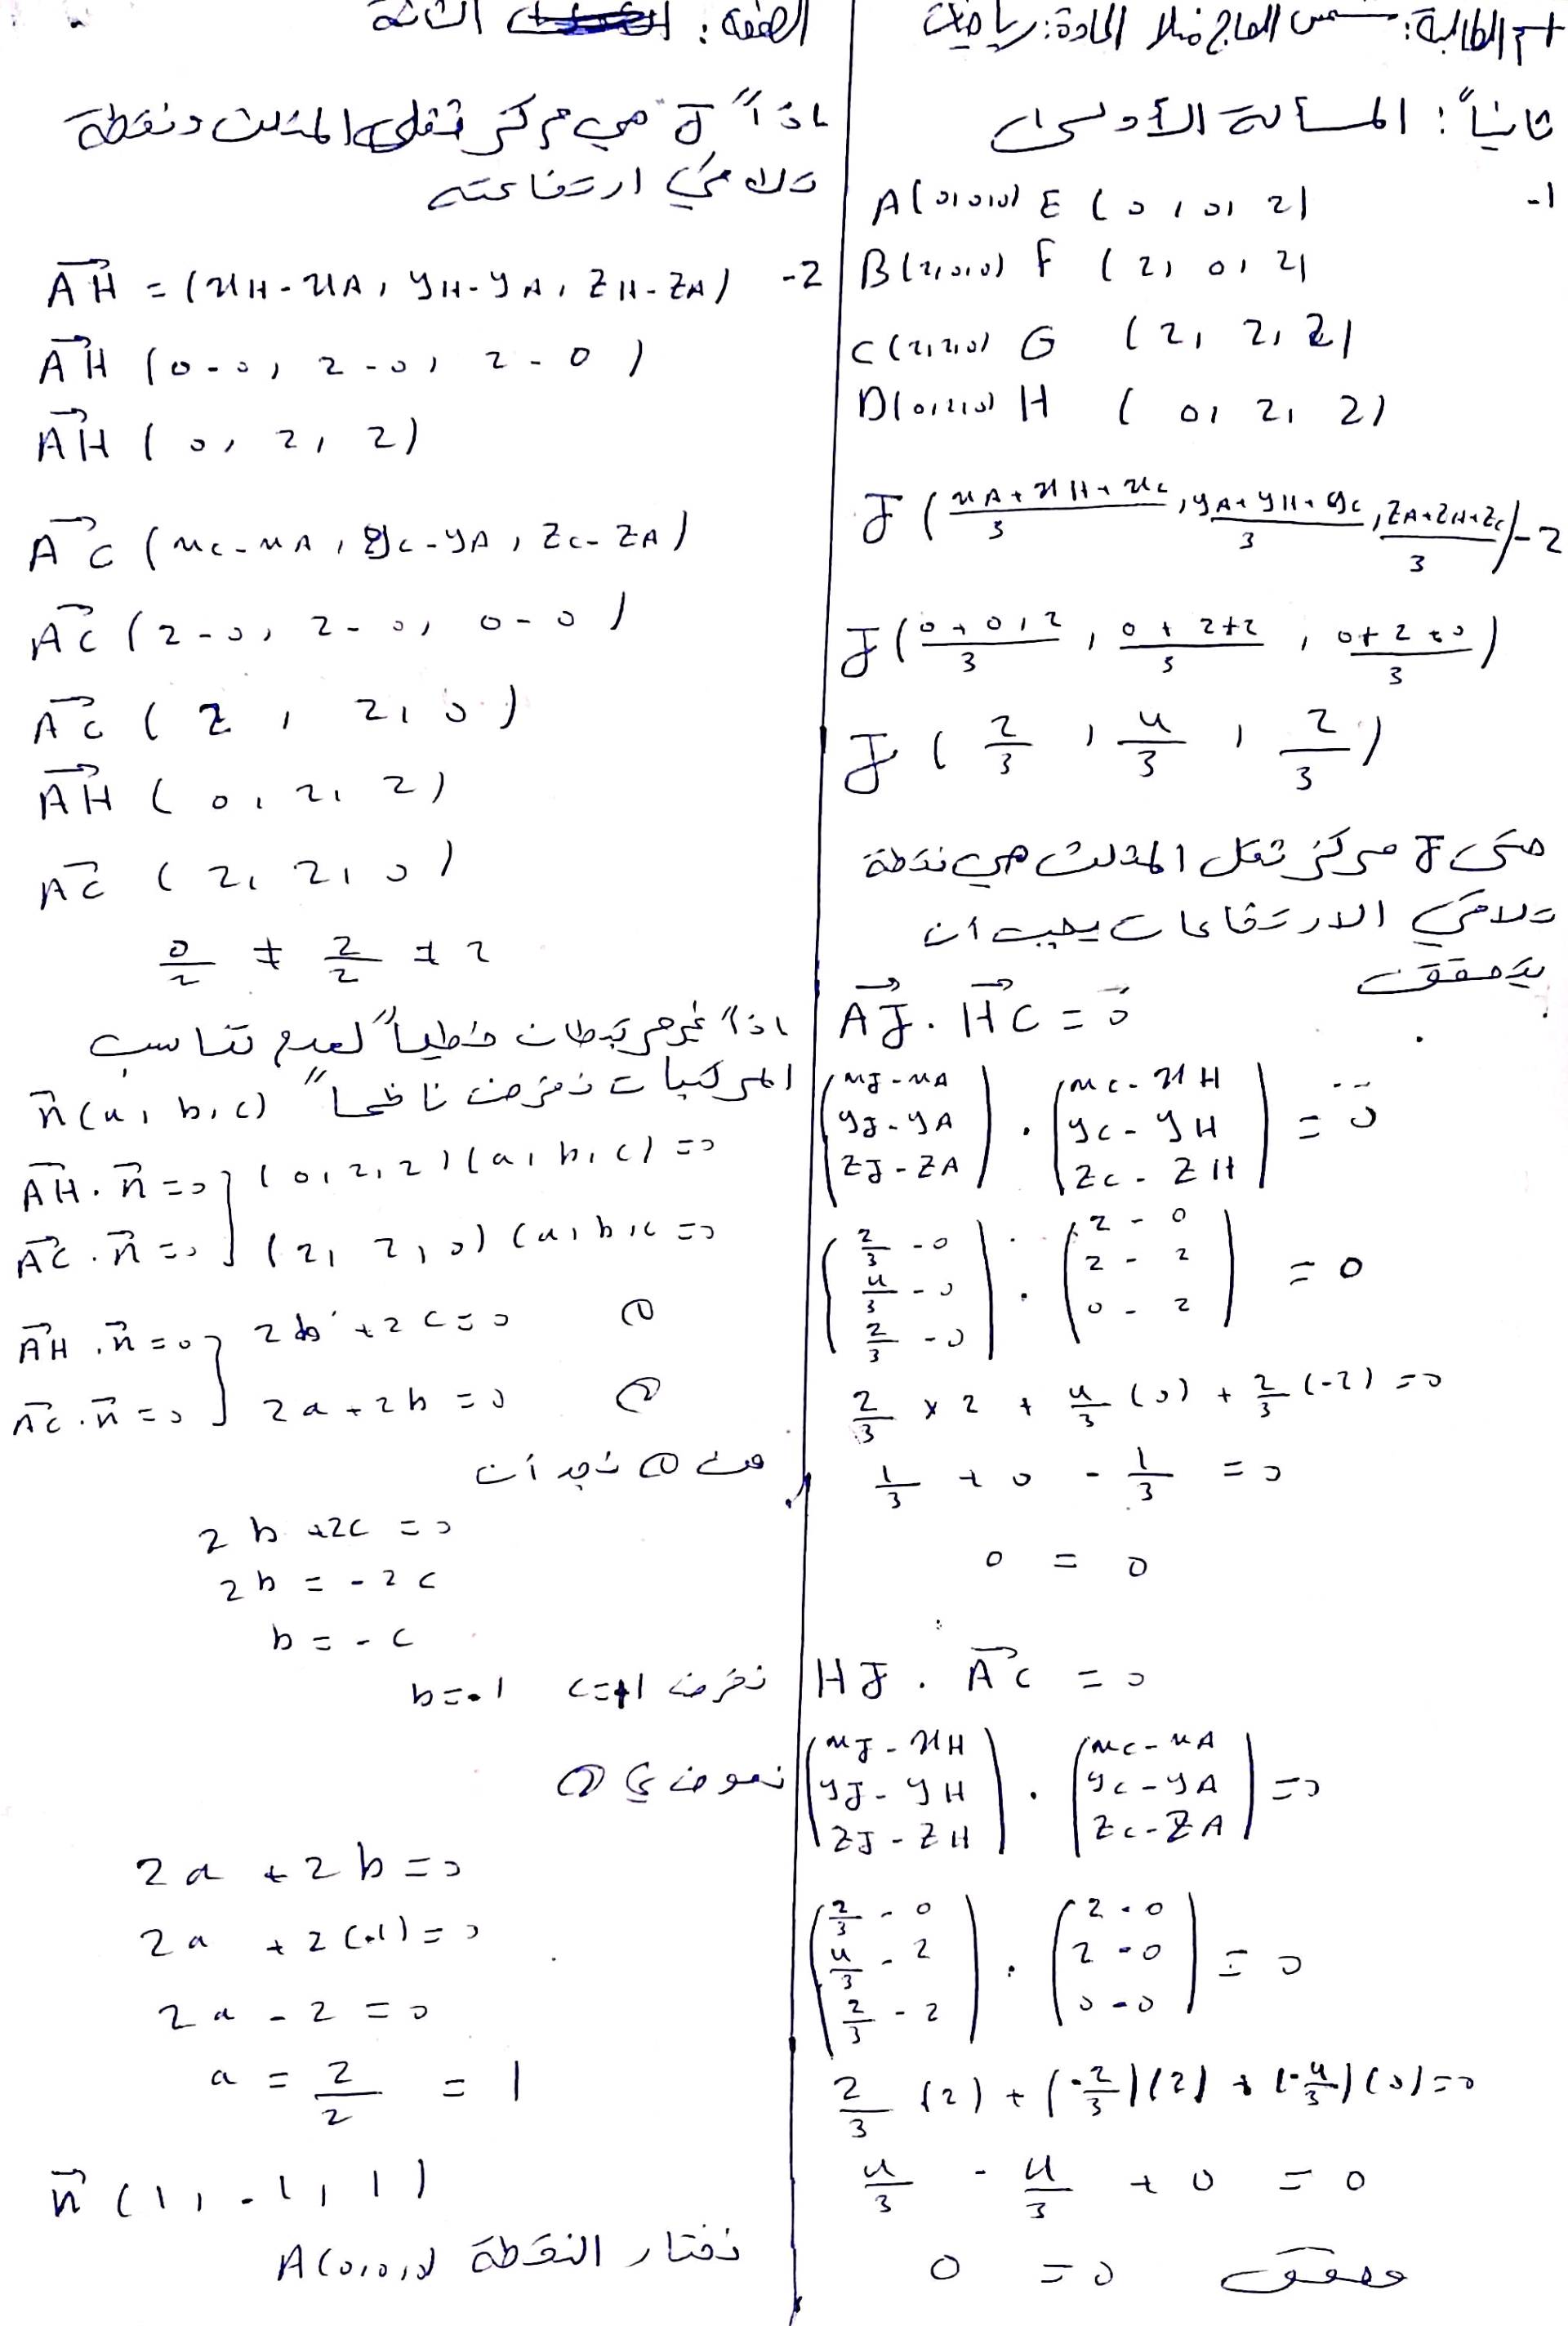 اسم الطالبة: شمس الحاج منلا المادة: رياضيات
ثانياً: المسألة الأولى
1- A(0,0,0) E (0, 0, 2)
B(2,0,0) F (2, 0, 2)
C(2,2,0) G (2, 2, 2)
D(0,2,0) H (0, 2, 2)
2- J ( xA + xH + xC / 3 , yA + yH + yC / 3 , zA + zH + zC / 3 )
J ( 0 + 0 + 2 / 3 , 0 + 2 + 2 / 3 , 0 + 2 + 0 / 3 )
J ( 2/3 , 4/3 , 2/3 )
حتى J مركز ثقل المثلث هي نقطة
تلاقي الارتفاعات يجب أن
يتحقق
AJ . HC = 0
( xJ - xA , yJ - yA , zJ - zA ) . ( xC - xH , yC - yH , zC - zH ) = 0
( 2/3 - 0 , 4/3 - 0 , 2/3 - 0 ) . ( 2 - 0 , 2 - 2 , 0 - 2 ) = 0
2/3 x 2 + 4/3 (0) + 2/3 (-2) = 0
1/3 + 0 - 1/3 = 0
0 = 0
HJ . AC = 0
( xJ - xH , yJ - yH , zJ - zH ) . ( xC - xA , yC - yA , zC - zA ) = 0
( 2/3 - 0 , 4/3 - 2 , 2/3 - 2 ) . ( 2 - 0 , 2 - 0 , 0 - 0 ) = 0
2/3 (2) + (-2/3)(2) + (-4/3)(0) = 0
4/3 - 4/3 + 0 = 0
0 = 0 محقق
الصفحة: الثانية
اذاً J هي مركز ثقل المثلث ونقطة
تلاقي ارتفاعته
2- AH = (xH - xA, yH - yA, zH - zA)
AH (0-0, 2-0, 2-0)
AH (0, 2, 2)
AC (xC - xA, yC - yA, zC - zA)
AC (2-0, 2-0, 0-0)
AC (2, 2, 0)
AH (0, 2, 2)
AC (2, 2, 0)
0/2 ≠ 2/2 ≠ 2
اذاً غير مرتبطان خطياً لعدم تناسب
المركبات نفرض ناظماً n(a, b, c)
AH . n = 0 } (0, 2, 2)(a, b, c) = 0
AC . n = 0 } (2, 2, 0)(a, b, c = 0
AH . n = 0 } 2b + 2c = 0 ①
AC . n = 0 } 2a + 2b = 0 ②
من ① نجد أن
2b + 2c = 0
2b = -2c
b = -c
نفرض c=+1 b=-1
نعوض في ②
2a + 2b = 0
2a + 2(-1) = 0
2a - 2 = 0
a = 2/2 = 1
n (1, -1, 1)
نختار النقطة A(0,0,0)